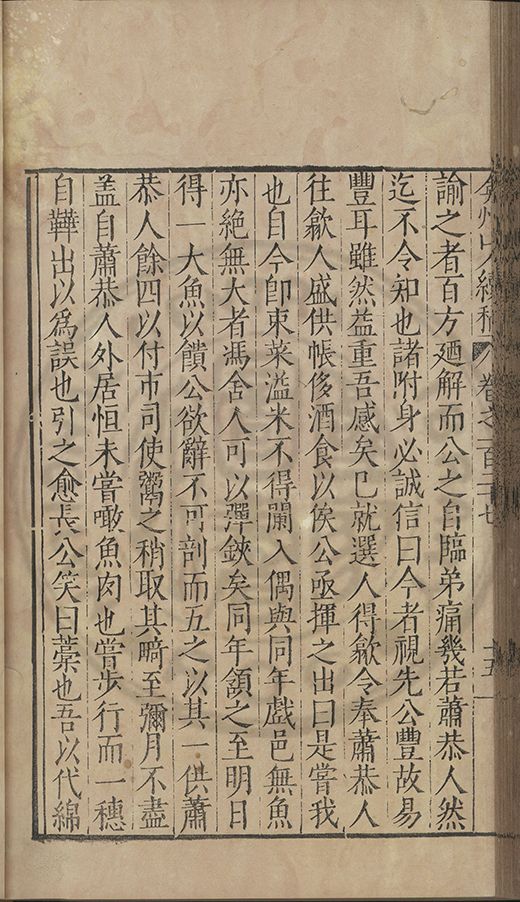 弇州山人續稿 卷之一百三十七 十五
諭之者百方廼解而公之自臨弟痛幾若蕭恭人然
迄不令知也諸附身必誠信曰今者視先公豐故易
豐耳雖然益重吾感矣已就選人得歙令奉蕭恭人
往歙人盛供帳侈酒食以俟公亟揮之出曰是嘗我
也自今卽束菜溢米不得闌入偶與同年戲邑無魚
亦絶無大者馮舍人可以彈鋏矣同年頷之至明日
得一大魚以饋公欲辭不可剖而五之以其一供蕭
恭人餘四以付市司使鬻之稍取其畸至彌月不盡
盖自蕭恭人外居恒未嘗噉魚肉也嘗步行而一穗
自鞾出以爲誤也引之愈長公笑曰藁也吾以代綿